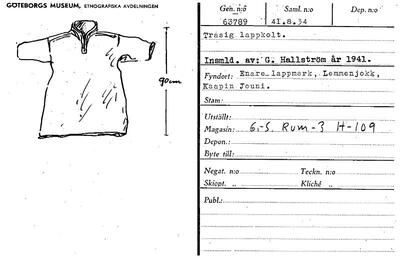 GÖTEBORGS MUSEUM, ETNOGRAFISKA AVDELNINGEN
90 cm
Gen. n:o Saml. n:o Dep. n:o
63789 41.8.34
Trasig lappkolt.
Insmld. av: G. Hallström år 1941.
Fyndort: Enare lappmark, Lemmenjokk,
Kaapin Jouni.
Stam:
Utställt:
Magasin: G.-S. Rum-3 H-109
Depon.:
Byte till:
Negat. n:o Teckn. n:o
Skiopt. „ Kliché „
Publ.: